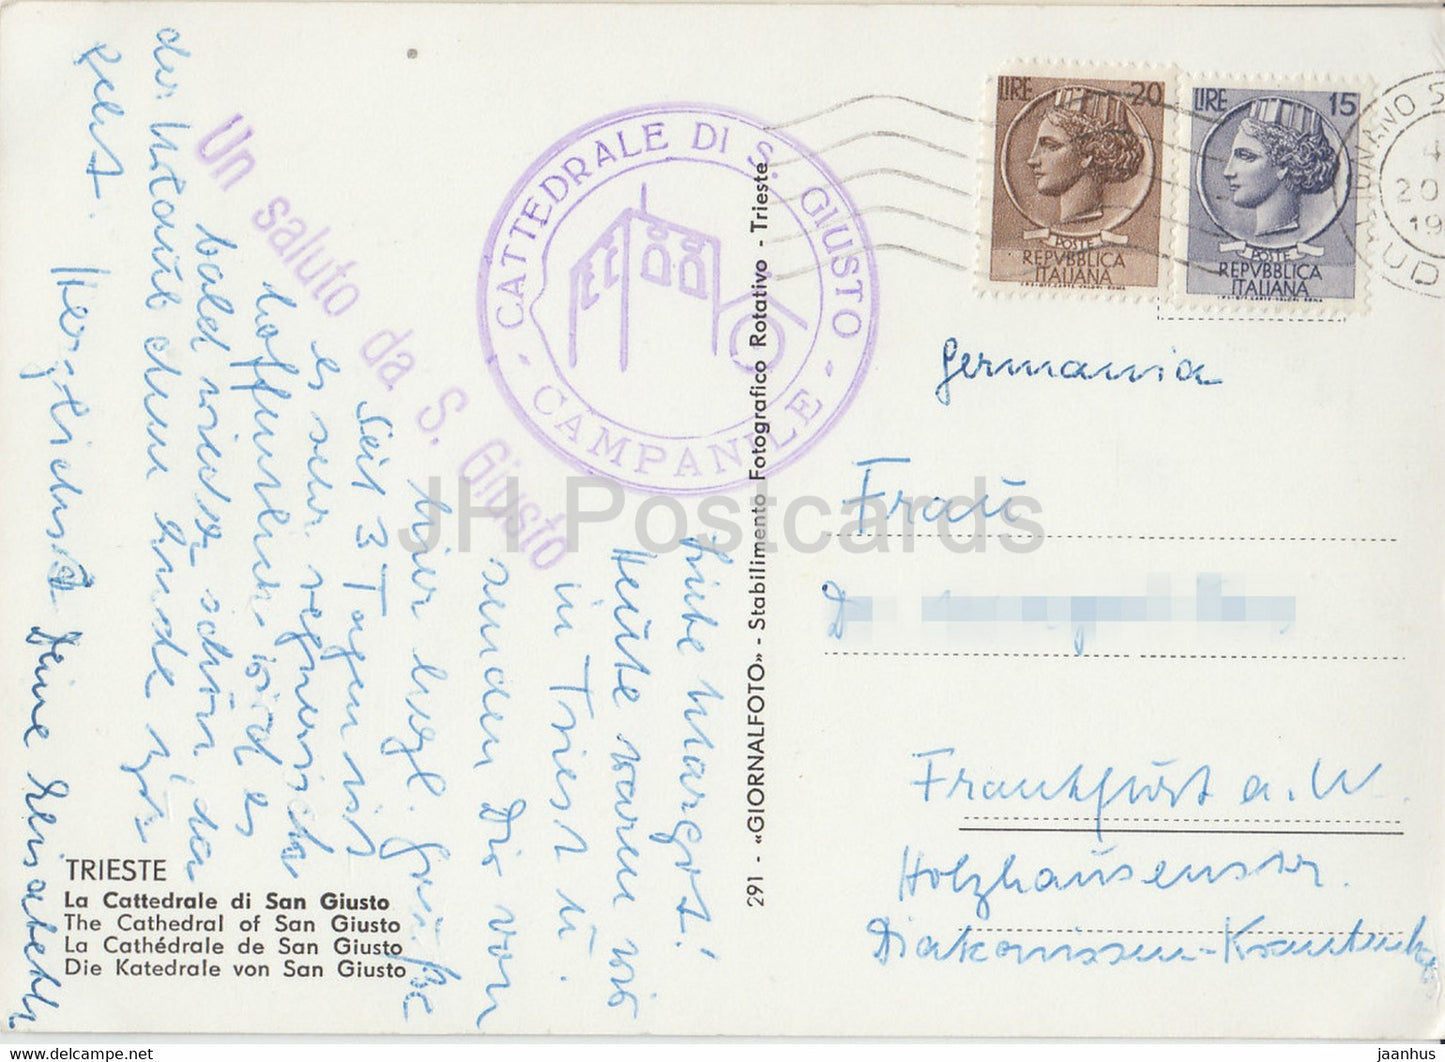 Liebe Margot!
Heute waren wir
in Triest u.
senden Dir von
hier herzl. Grüße
Seit 3 Tagen ist
es sehr regnerisch
hoffentlich wird es
bald wieder schön, da
der Urlaub dem Ende zu
geht. Herzlichst Deine Elisabeth
Un saluto da S. Giusto
CATTEDRALE DI S. GIUSTO
- CAMPANILE -
291 - «GIORNALFOTO» - Stabilimento Fotografico Rotativo - Trieste
TRIESTE
La Cattedrale di San Giusto
The Cathedral of San Giusto
La Cathédrale de San Giusto
Die Katedrale von San Giusto
LIRE 20
POSTE
REPVBBLICA
ITALIANA
LIRE 15
POSTE
REPVBBLICA
ITALIANA
4
20
19
UD
Germania
Frau
Frankfurt a. M.
Holzhausenstr.
Diakonissen-Krankenhs
JH Postcards
delcampe.net
jaanhus